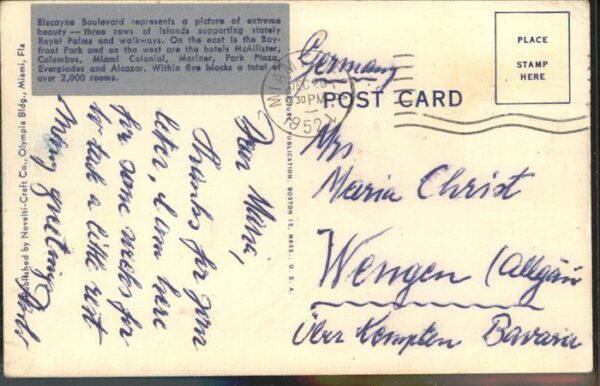 Biscayne Boulevard represents a picture of extreme
beauty — three rows of islands supporting stately
Royal Palms and walkways. On the east is the Bay-
front Park and on the west are the hotels McAllister,
Columbus, Miami Colonial, Mariner, Park Plaza,
Everglades and Alcazar. Within five blocks a total of
over 2,000 rooms.
Published by Novelti-Craft Co., Olympia Bldg., Miami, Fla
Dear Maria,
Thanks for your
letter, I am here
for some weeks for
to take a little rest
Many greetings
PUBLICATION, BOSTON 15, MASS., U. S. A.
MIAMI
DEC
30 PM
1952
POST CARD
PLACE
STAMP
HERE
Germany
Mrs
Maria Christ
Wengen (Allgäu
über Kempten Bavaria